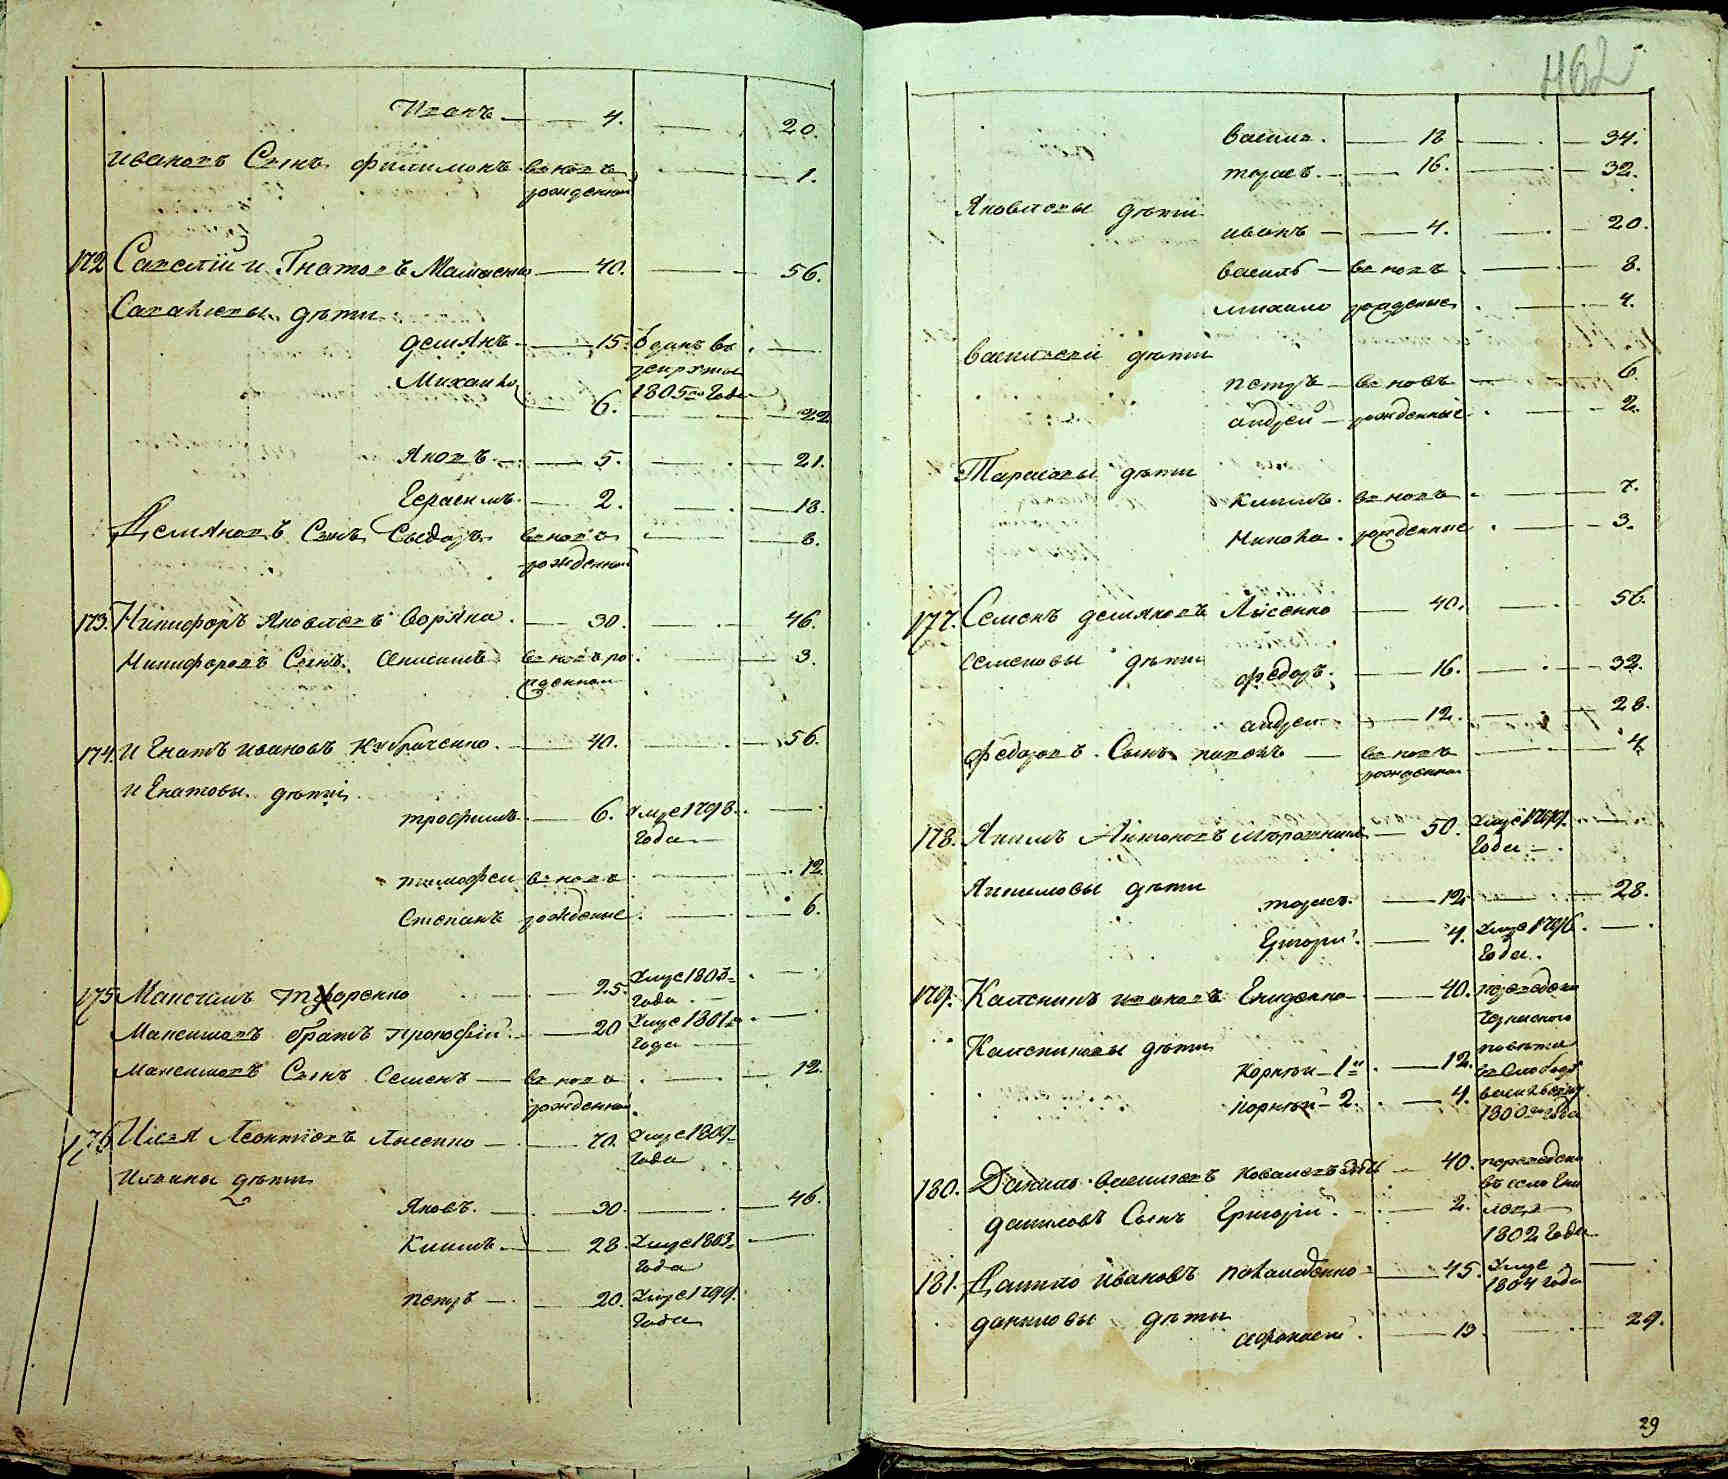 Иванъ — 4. — 20.
Ивановъ Сынъ Филимонъ вновъ — 1.
рожденной
172 Савелiй Игнатовъ — 40. — 56.
Савельевы дѣти
Демянъ — 15. Оданъ въ —
рекруты
Михайло 1805го Года
6. — 22
Яковъ — 5. — 21.
Герасимъ — 2. — 18.
Демяновъ Сынъ Сидоръ вновъ — 8.
рожденной
173. Никифоръ Яковлевъ — 30. — 46.
Никифоровъ Сынъ Анисимъ вновъ ро — 3.
жденной
174. Игнатъ Ивановъ — 40. — 56.
Игнатовы дѣти
Трофимъ — 6. Умре 1798. —
Года
Тимофей вновъ — 12
Степанъ рожденые — 6.
175. Максимъ — 25. Умре 1803 —
Года
Максимовъ братъ Прокофiй — 20 Умре 1801 —
Года
Максимовъ Сынъ Семенъ — вновъ — 12
рожденной
176 Илья Леонтiевъ Лысенко — 70. Умре 1809
Года
Ильины дѣти
Яковъ. — 30. — 46.
Климъ — 28. Умре 1803 —
Года
Петръ — 20. Умре 1799.
Года
462
Василь. — 18 — 34.
Тарасъ. — 16. — 32.
Яковлевы дѣти
Иванъ — 4. — 20.
Василь — вновъ — 8.
Михайло рожденые — 4.
Васильевы дѣти
Петръ — вновъ — 6.
Андрей — рожденные — 2.
Тарасовы дѣти
Климъ. вновъ — 7.
Никола. рожденные — 3.
177. Семенъ Демяновъ Лысенко — 40. — 56.
Семеновы дѣти
Федоръ. — 16. — 32.
Андрей — 12. — 28.
Федоровъ Сынъ — вновъ — 4.
рожденной
178. Якимъ Антоновъ — 50. Умре 1799. —
Года —
Якимовы дѣти
Тарасъ. — 12 — 28.
Григорiй. — 4. Умре 1796. —
Года.
179. Каленикъ Ивановъ — 40. переведены
Калениковы дѣти
повѣта
Корнѣй — 1й — 12. въ Слободу
Корнѣй — 2. — 4.
1800го года
180. Данило Васильевъ — 40. переведены
въ село
Даниловъ Сынъ Григорiй. — 2.
1802 Года
181. Данило Ивановъ — 45. Умре —
1804 года
Даниловы дѣти
Афонасiй. — 13. — 29.
29